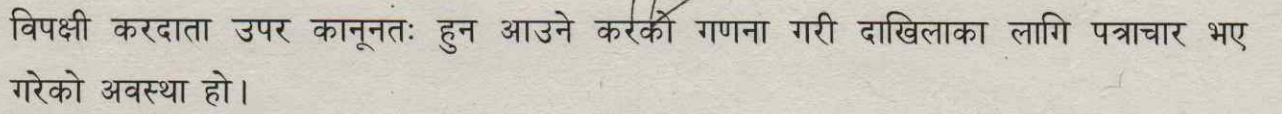 विपक्षी करदाता उपर कानूनतः हुन आउने करको गणना गरी दाखिलाका लागि पत्राचार भए
गरेको अवस्था हो।